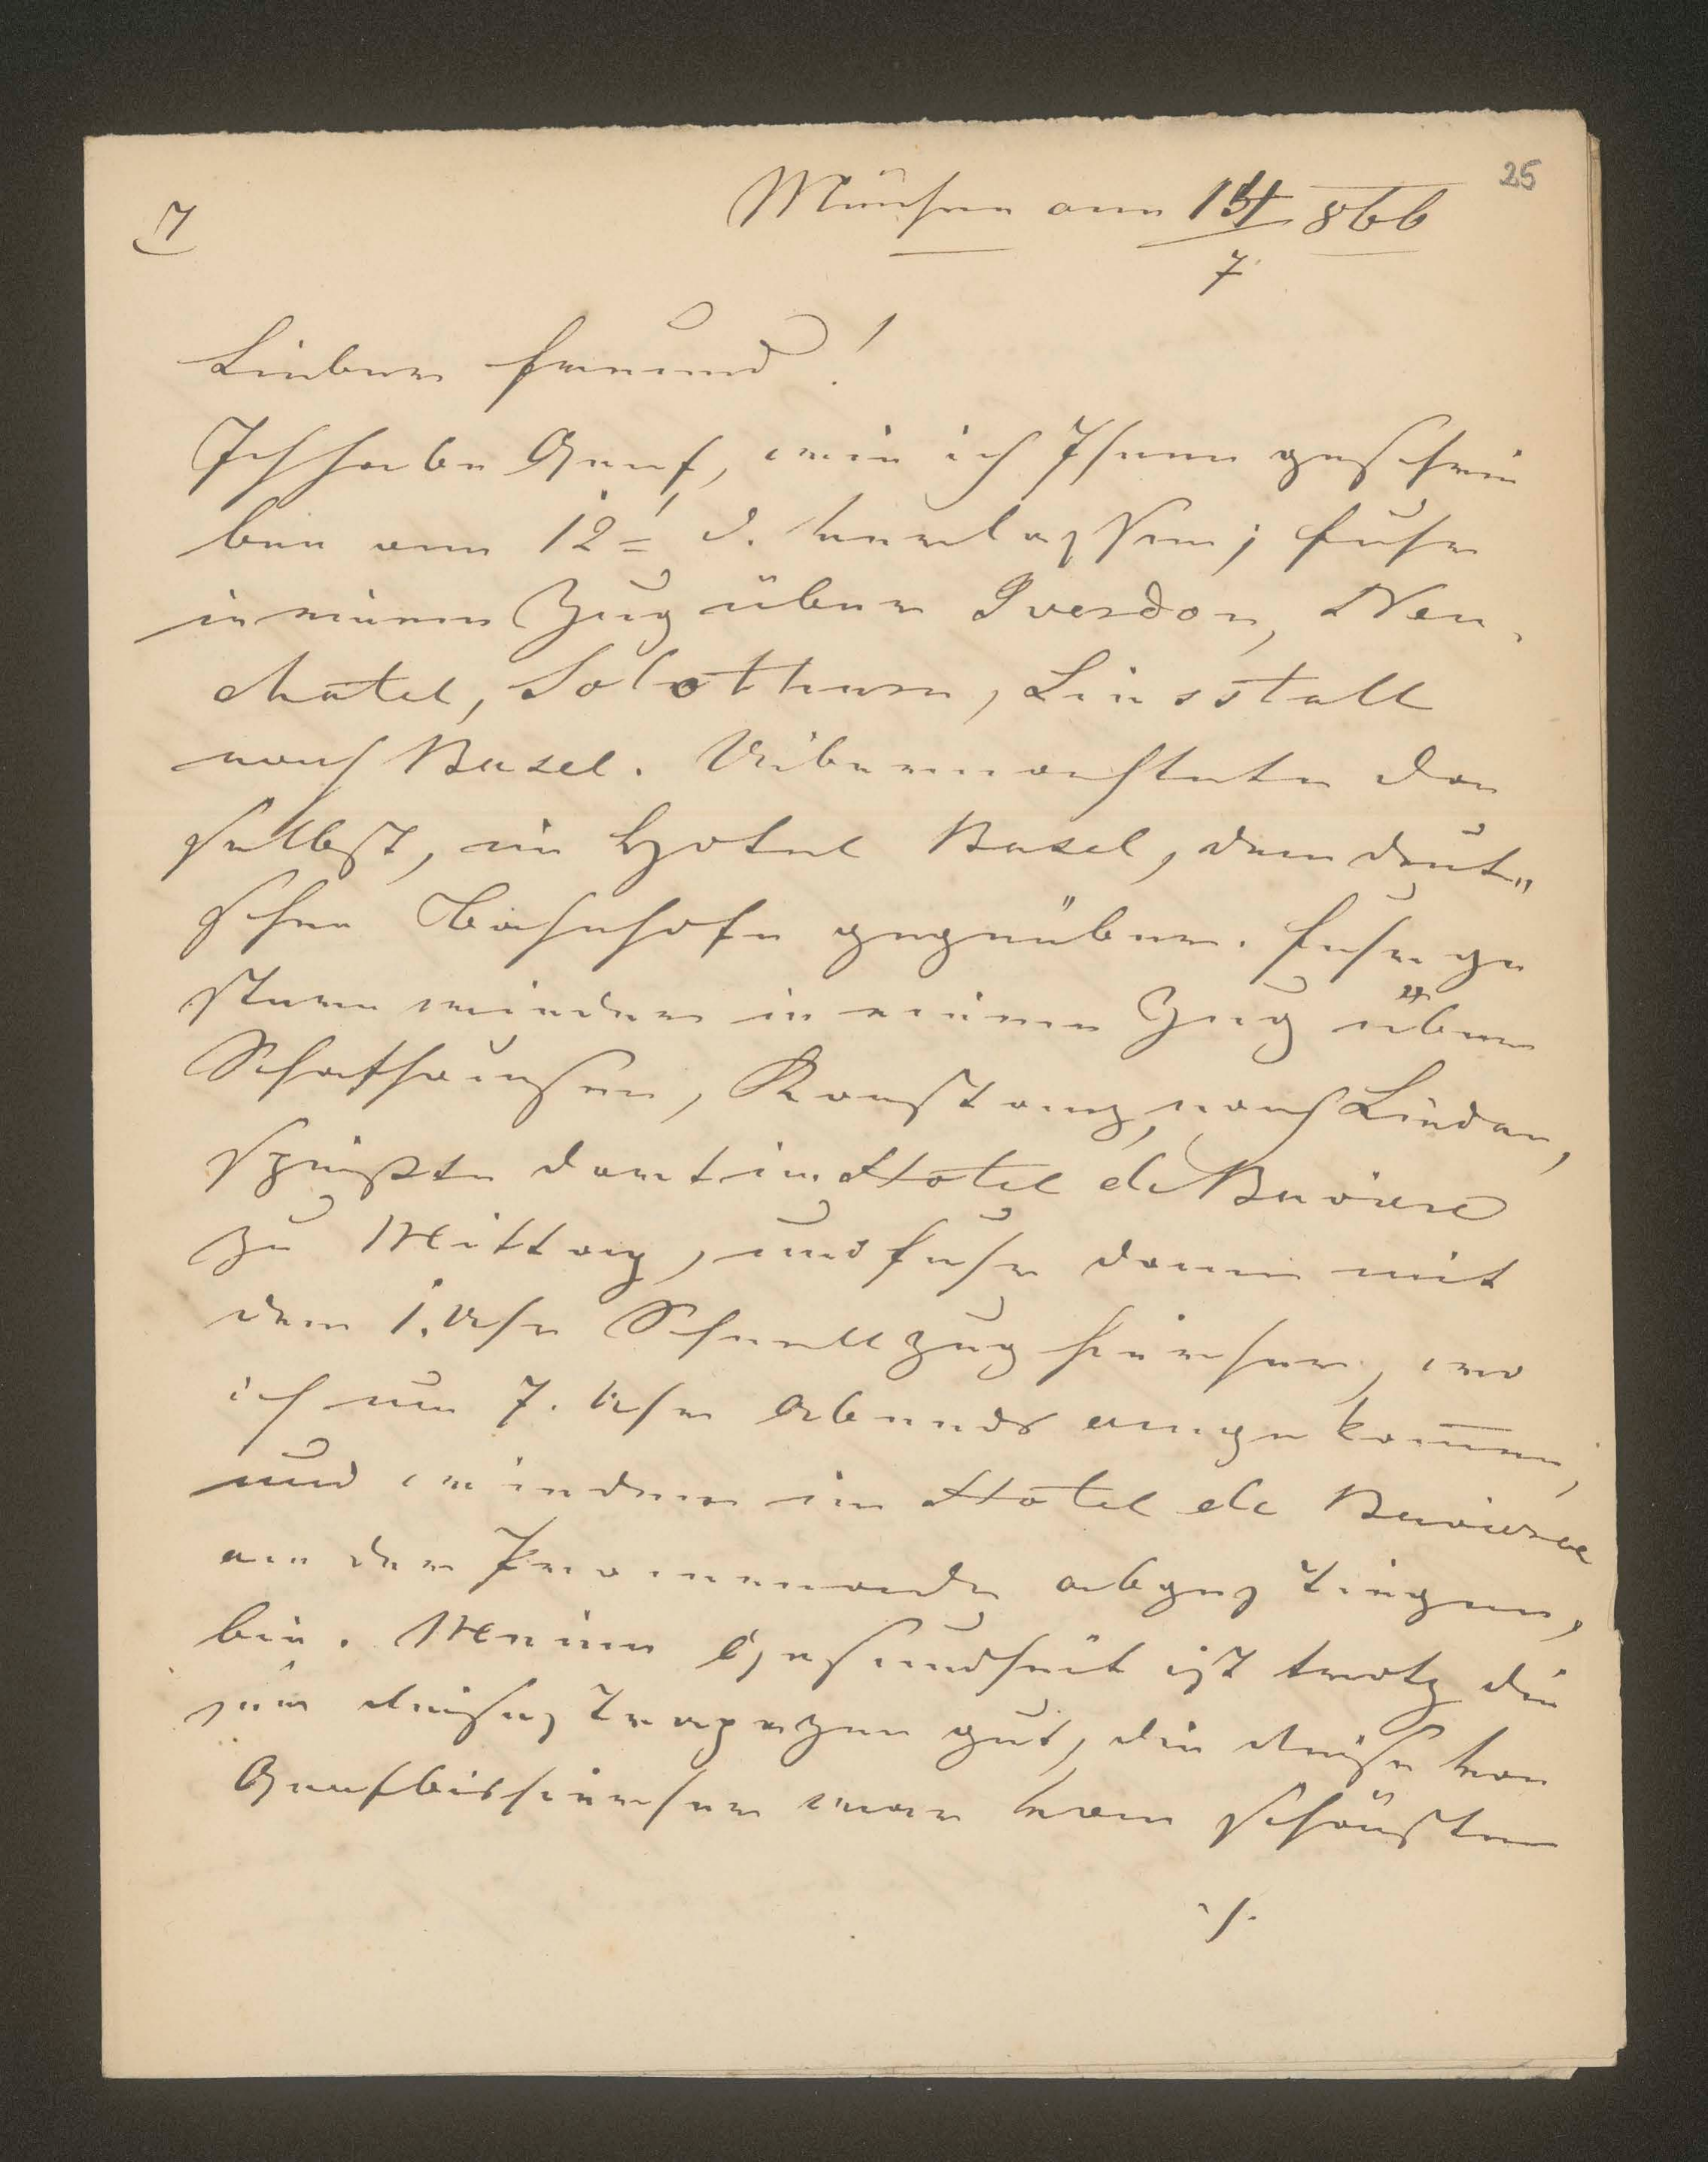 25
7
München am 14/7 866
Lieber Freund!
Ich habe Genf, wie ich Ihnen geschrie
ben am 12= d. verlassen; fuhr
in einem Zug über Iverdon, Neu-
chatel, Solothurn, Liesstall
nach Basel. Uibernachtete da
selbst, im Hotel Basel, dem deut„
schen Bahnhofe gegenüber. Fuhr ge
stern wieder in einem Zug über
Schafhausen, Konstanz, nach Lindau,
speißte dort im Hotel de Baviere
zu Mittag, und fuhr dann mit
dem 1. Uhr Schnellzug hierher, wo
ich um 7. Uhr Abends angekommen,
und wieder im Hotel de Baviere
an der Promenade abgestiegen,
bin. Meine Gesundheit ist trotz die
ser Reisestrapazen gut, die Reise von
Genf bis hierher war vom schönsten
./.